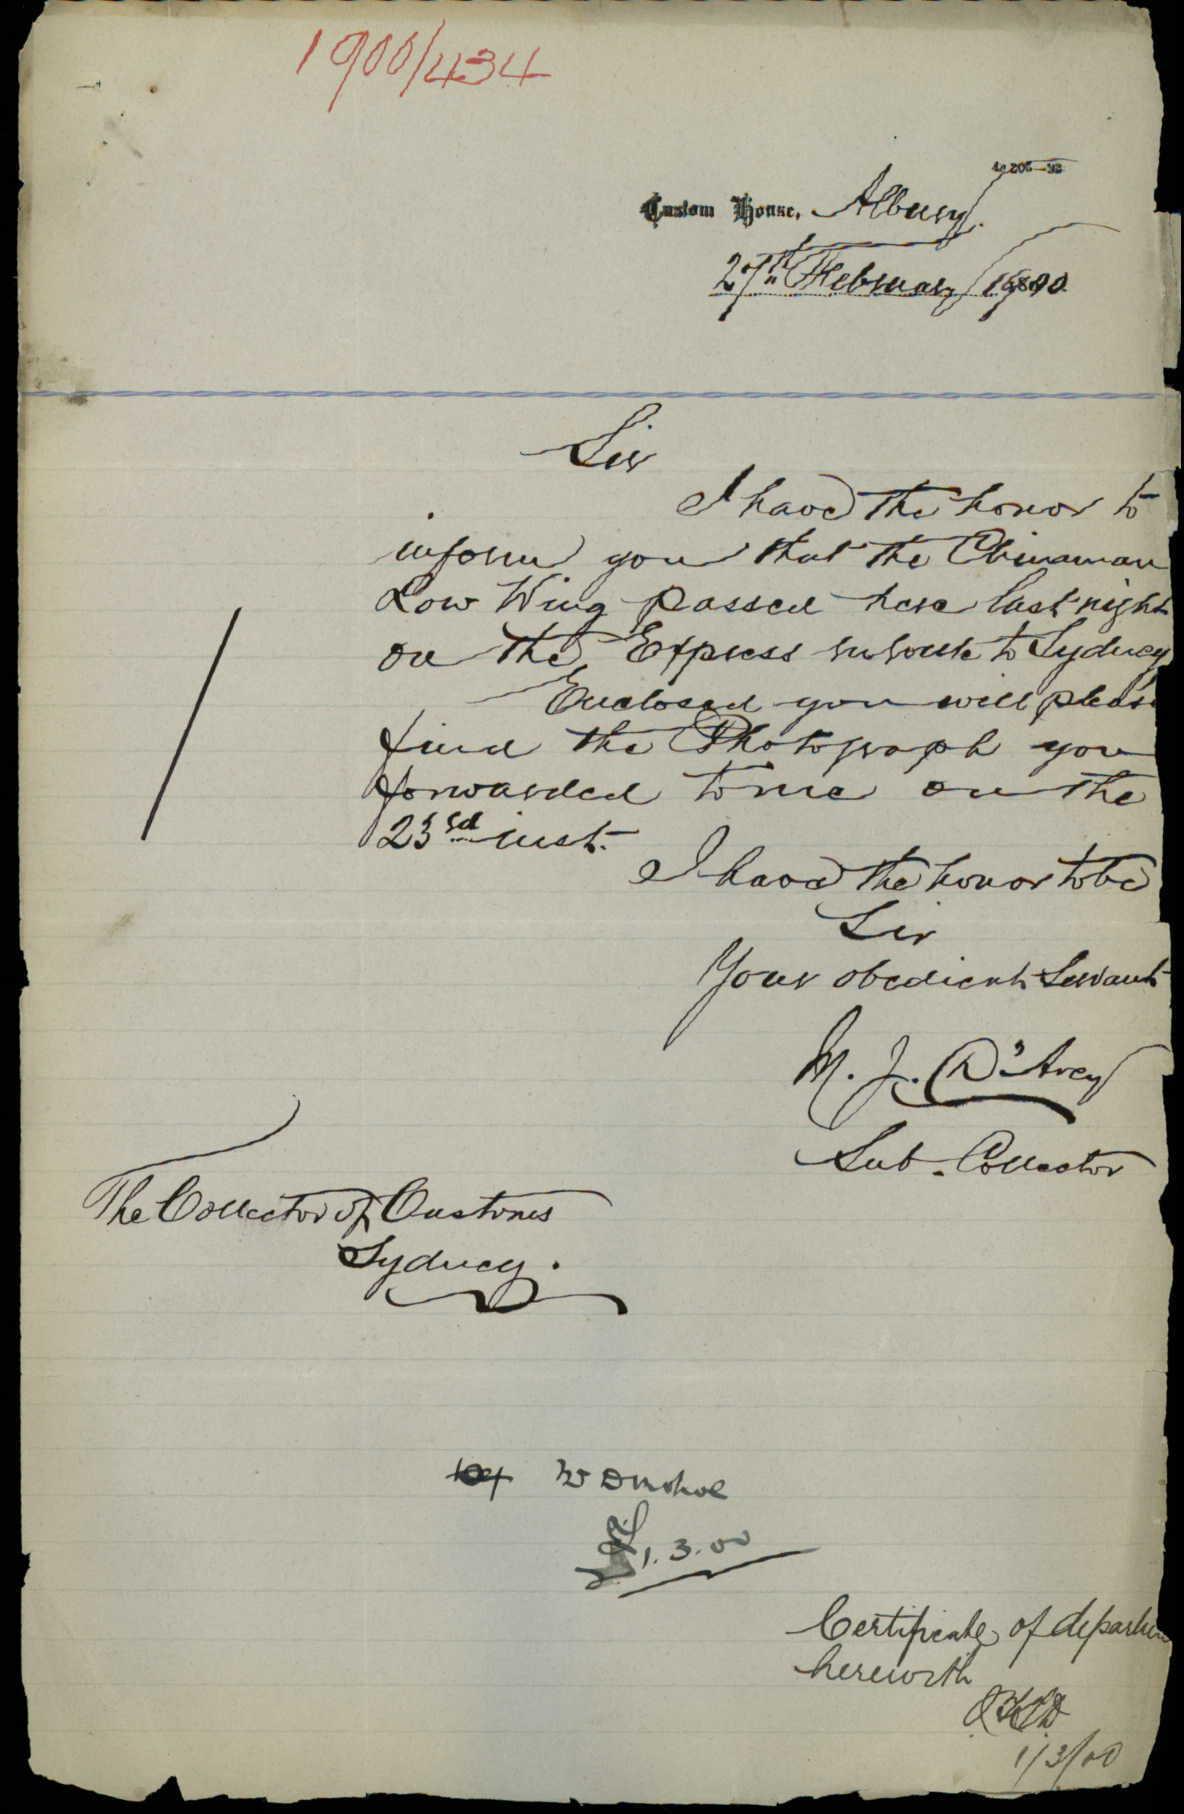 1900/434
Custom House, Albury
27th February 1900
Sir
I have the honor to
inform you that the Chinaman
Low Wing passed here last night
on the Express en route to Sydney
Enclosed you will please
find the Photograph you
forwarded to me on the
23rd inst.
I have the honor to be
Sir
Your obedient Servant
M. J. D'Arcy
Sub. Collector
The Collector of Customs
Sydney.
W Donohoe
1.3.00
Certificate of departure
herewith
1/3/00